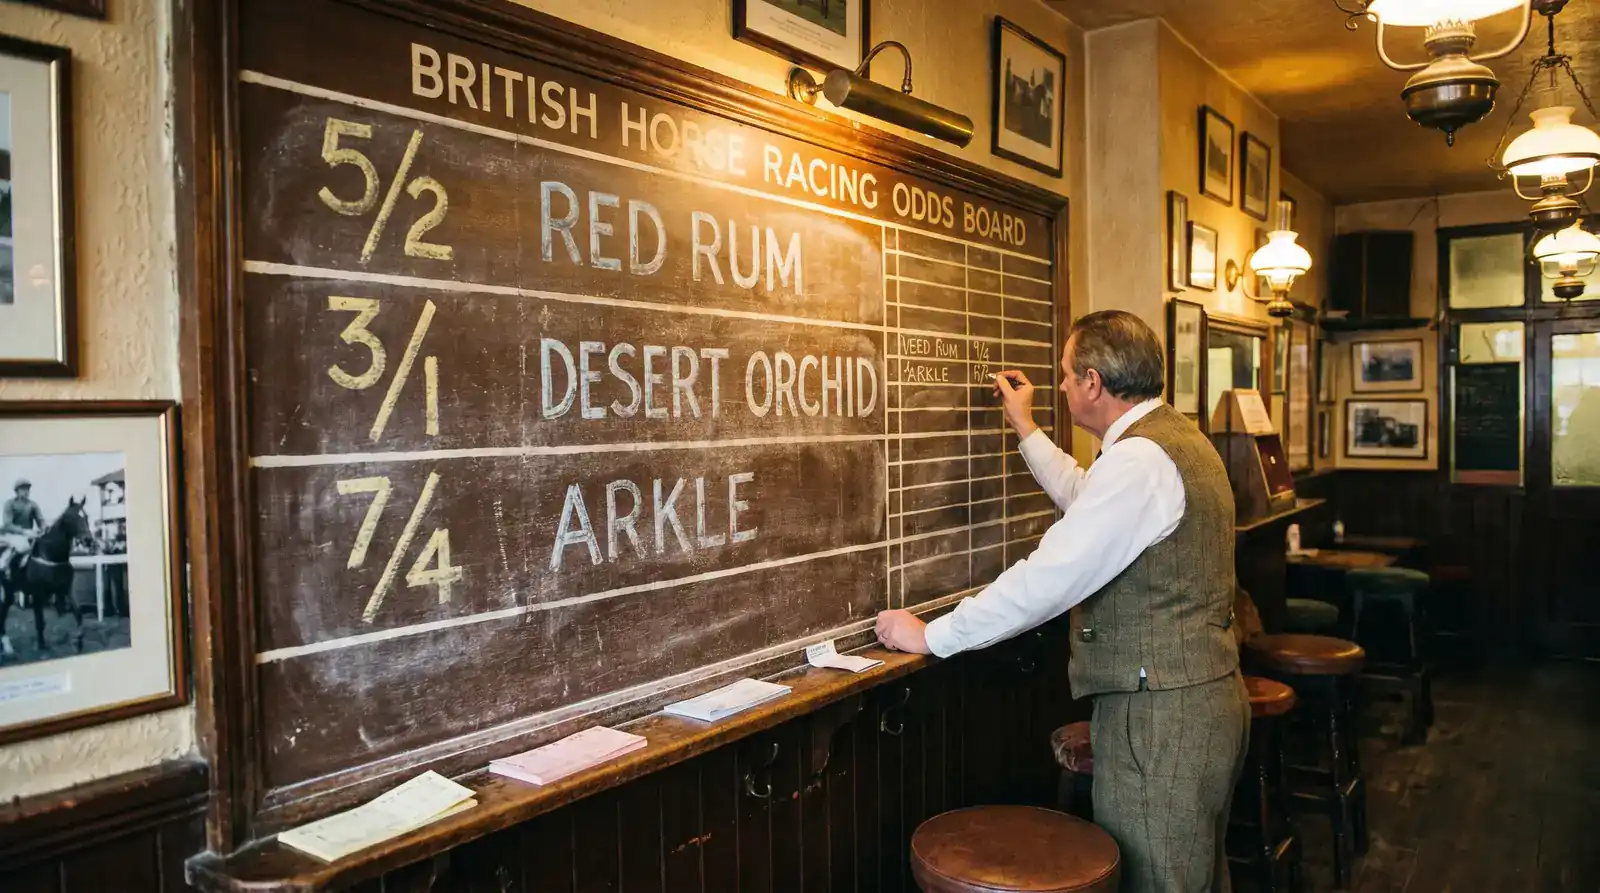 BRITISH HORSE RACING ODDS BOARD
5/2 RED RUM
3/1 DESERT ORCHID
7/4 ARKLE
VEED RUM 9/4
ARKLE